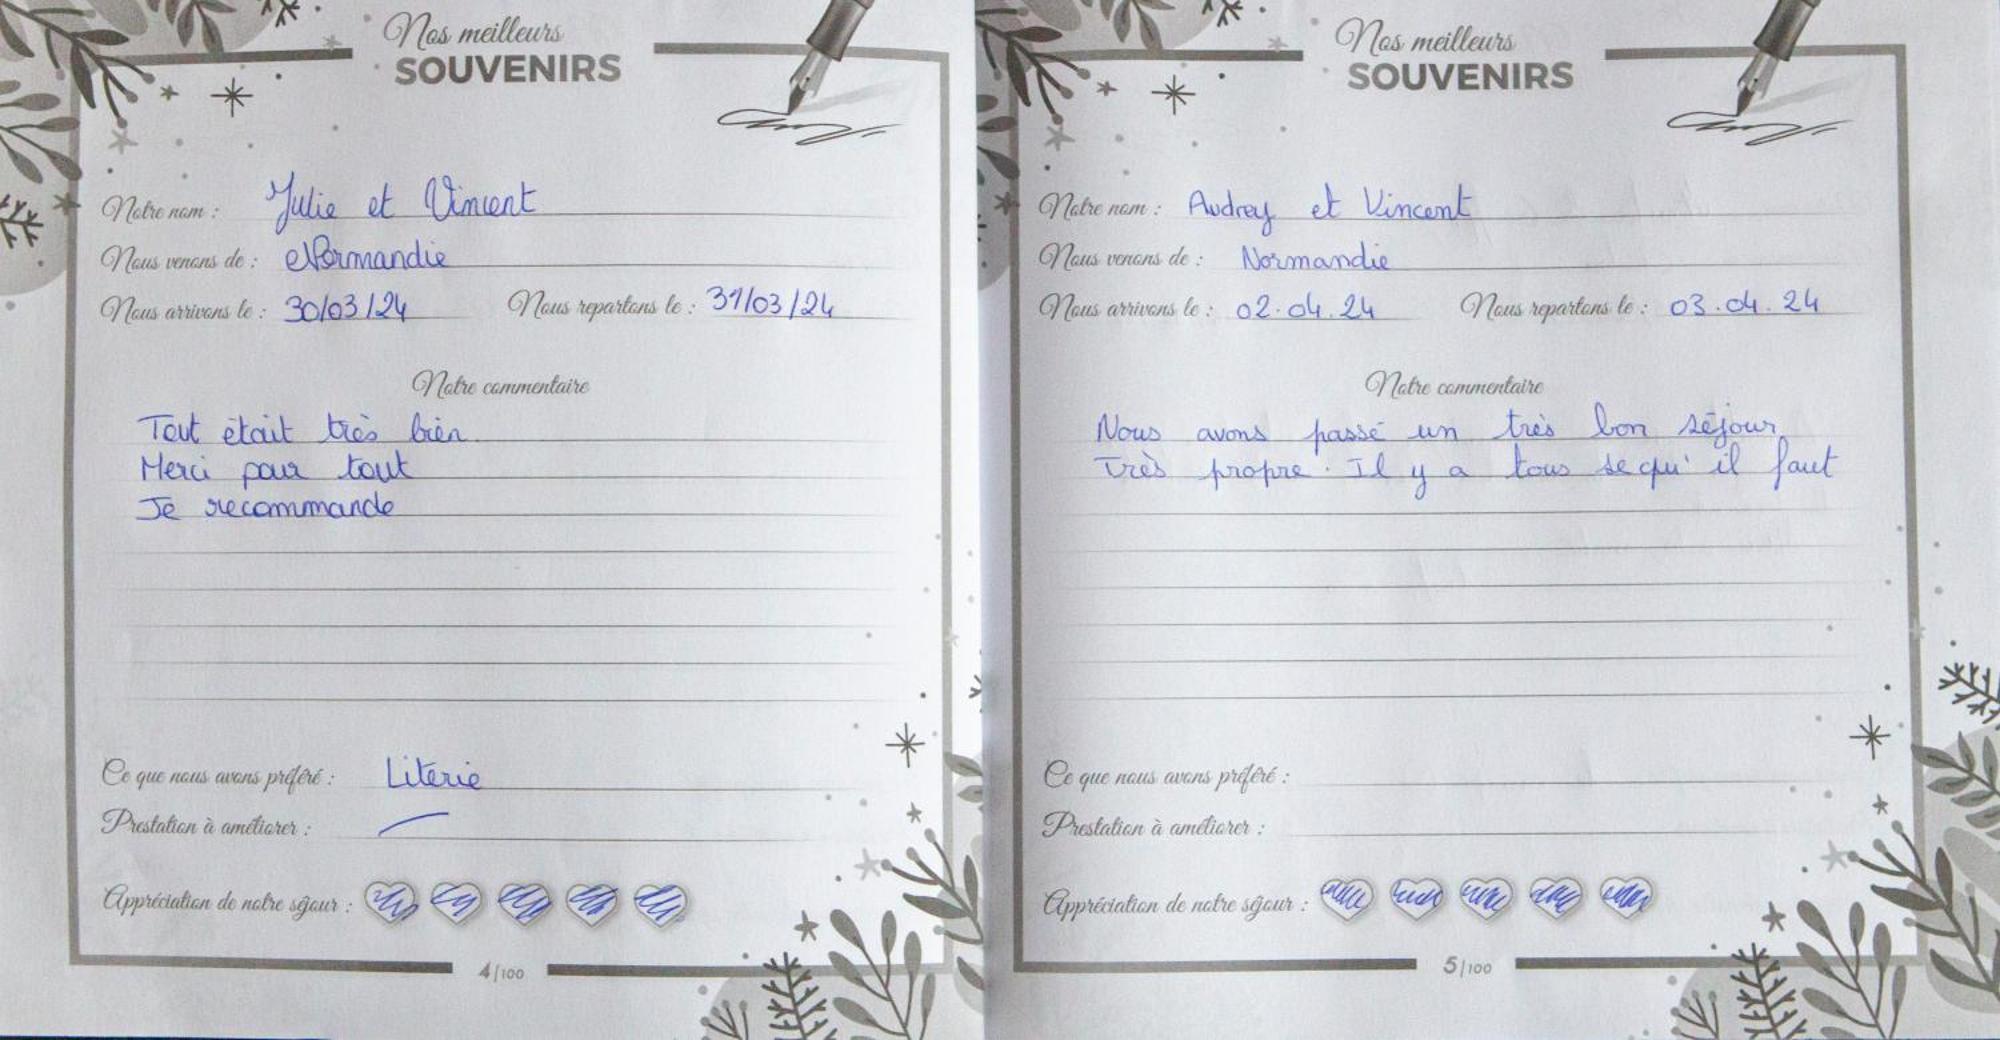 Nos meilleurs
SOUVENIRS
Notre nom : Julie et Vincent
Nous venons de : Normandie
Nous arrivons le : 30/03/24 Nous repartons le : 31/03/24
Notre commentaire
Tout était très bien
Merci pour tout
Je recommande
Ce que nous avons préféré : Literie
Prestation à améliorer :
Appréciation de notre séjour :
4/100
Nos meilleurs
SOUVENIRS
Notre nom : Audrey et Vincent
Nous venons de : Normandie
Nous arrivons le : 02.04.24 Nous repartons le : 03.04.24
Notre commentaire
Nous avons passé un très bon séjour
Très propre. Il y a tous se qu'il faut
Ce que nous avons préféré :
Prestation à améliorer :
Appréciation de notre séjour :
5/100